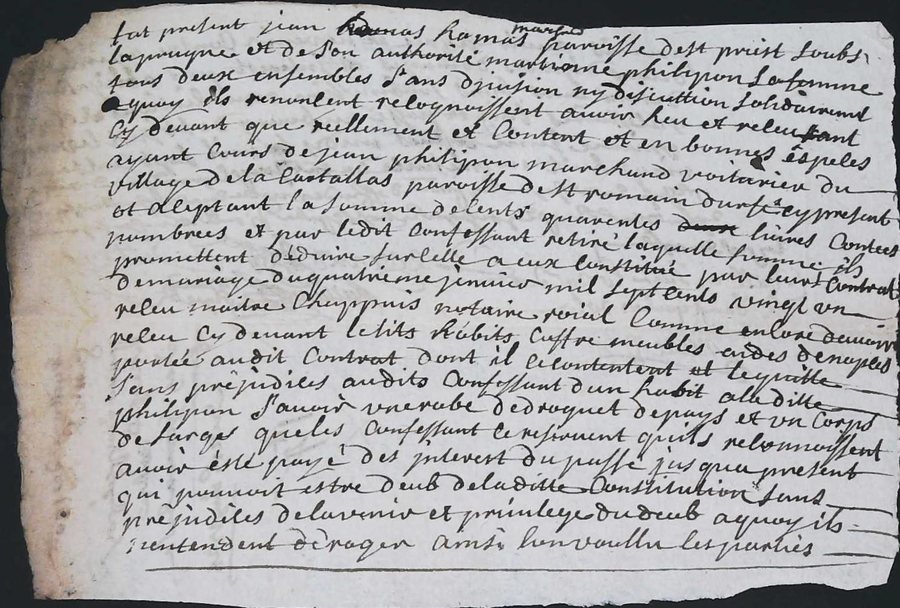 fut present jean Ramas marchand paroisse de st priest soubs
laprugne et de son authorité marianne philipon sa femme
tous deux ensembles sans division ny discuttion solidairement
a quoy ils renoncent recognoissent avoir heu et receu tant
cy devant que reellement et content et en bonnes especes
ayant cours de jean philipon marchand voiturier du
village de la paroisse de st romain durfé cy present
et aceptant la somme de cents quarentes livres contees
nombrees et par ledit confessant retiré laquelle somme ils
promettent déduire sur celle a eux constituée par leurs contrat
de mariage du quatrieme jenvier mil sept cents vingt un
receu maitre Chappuis notaire roial comme encore davoir
receu cy devant le lits habits coffre meubles audes denoples
portée audit contrat dont il ce contentent et le quitte
sans prejudices audits confessant dun habit a la ditte
philipon savoir une robe de droguet de pays et un corps
de sarges que les confessant ce reservent quils reconnoissent
avoir esté payé des jnterest du passé jusqua present
qui pouvoit estre deub de la ditte Constitution sans
prejudices de lavenir et privilege du deub a quoy ils
nentendent déroger ainsi lon voullu les parties